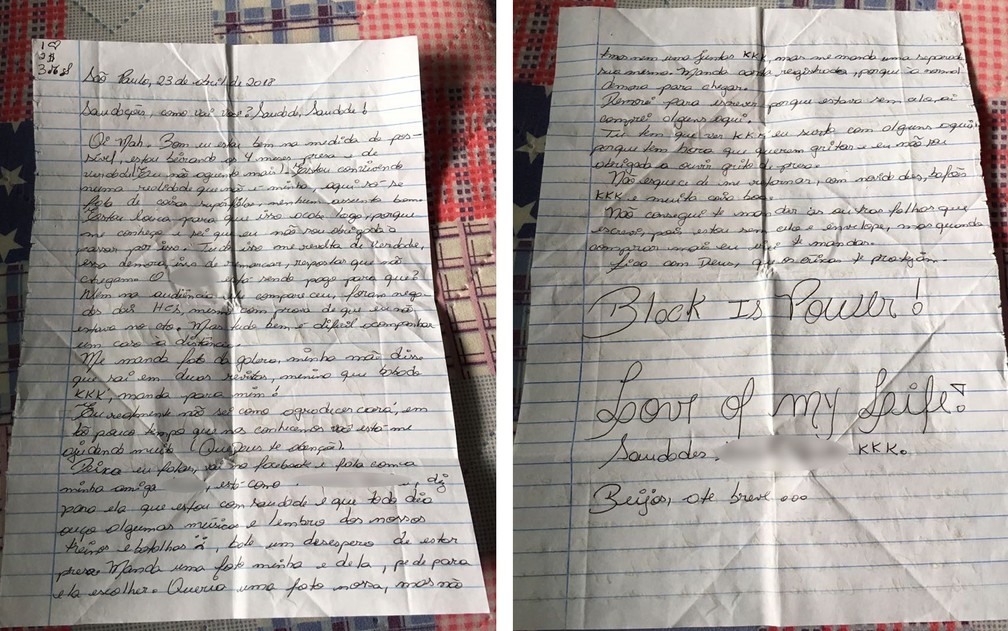 1
2
3
São Paulo, 23 de abril de 2018
Saudações, como vai você? Saudade, Saudade!
Oi Nah. Bom eu estou bem na medida do pos-
sível, estou beirando os 4 meses presa e de
verdade? Eu não aguento mais! Estou convivendo
numa realidade que não é minha, aqui só se
fala de coisas repetidas, nenhum assunto bom.
Estou louca para que isso acabe logo, porque
me conheço e sei que eu não sou obrigada a
passar por isso. Tudo isso me revolta de verdade,
essa demora, isso de remarcar, respostas que não
chegam. O está sendo pago para que?
Nem na audiência compareceu, foram nega-
dos dois HCs, mesmo com prova de que eu não
estava no ato. Mas tudo bem é difícil acompanhar
um caso a distância.
Me manda foto da galera, minha mãe disse
que saí em duas revistas, menina que babado
KKK, manda para mim!
Eu realmente não sei como agradecer cara, em
tão pouco tempo que nos conhecemos você está me
ajudando muito (Que Zeus te abençõe).
Deixa eu falar, vai no facebook e fala com a
minha amiga , está como , diz
para ela que estou com saudade e que todo dia
ouço algumas músicas e lembro dos nossos
treinos e batalhas, bate um desespero de estar
presa. Manda uma foto minha e dela, pede para
ela escolher. Queria uma foto nossa, mas não
temos nem uma juntas KKK, mas me manda uma separada
sua mesmo. Manda carta registrada, porque a normal
demora para chegar.
Demorei para escrever, porque estava sem selo, aí
comprei alguns aqui.
Tu tem que ver KKK eu surto com algumas aqui,
porque tem hora que querem gritar e eu não sou
obrigada a ouvir grito de presa.
Não esqueça de me informar, com novidades, bafão
KKK e muita coisa boa.
Não consegui te mandar as outras folhas que
escrevi, pois estou sem selo e envelope, mas quando
comprar mais eu irei te mandar.
Fica com Deus, que os orixas te protejam...
Black Is Power!
Love of my Life!
Saudades, KKK.
Beijos, ate breve ooo